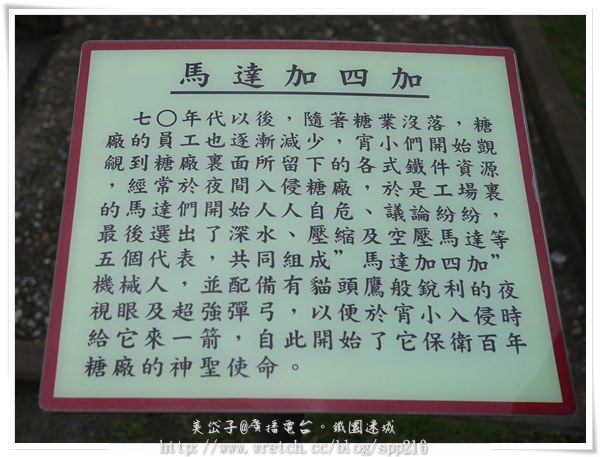 馬達加四加
七〇年代以後，隨著糖業沒落，糖
廠的員工也逐漸減少，宵小們開始觀
覦到糖廠裏面所留下的各式鐵件資源
，經常於夜間入侵糖廠，於是工場裏
的馬達們開始人人自危、議論紛紛，
最後選出了深水、壓縮及空壓馬達等
五個代表，共同組成”馬達加四加”
機械人，並配備有貓頭鷹般銳利的夜
視眼及超強彈弓，以便於宵小入侵時
給它來一箭，自此開始了它保衛百年
糖廠的神聖使命。
美岱子@廣播電台。鐵園迷城
http://www.wretch.cc/blog/spp216